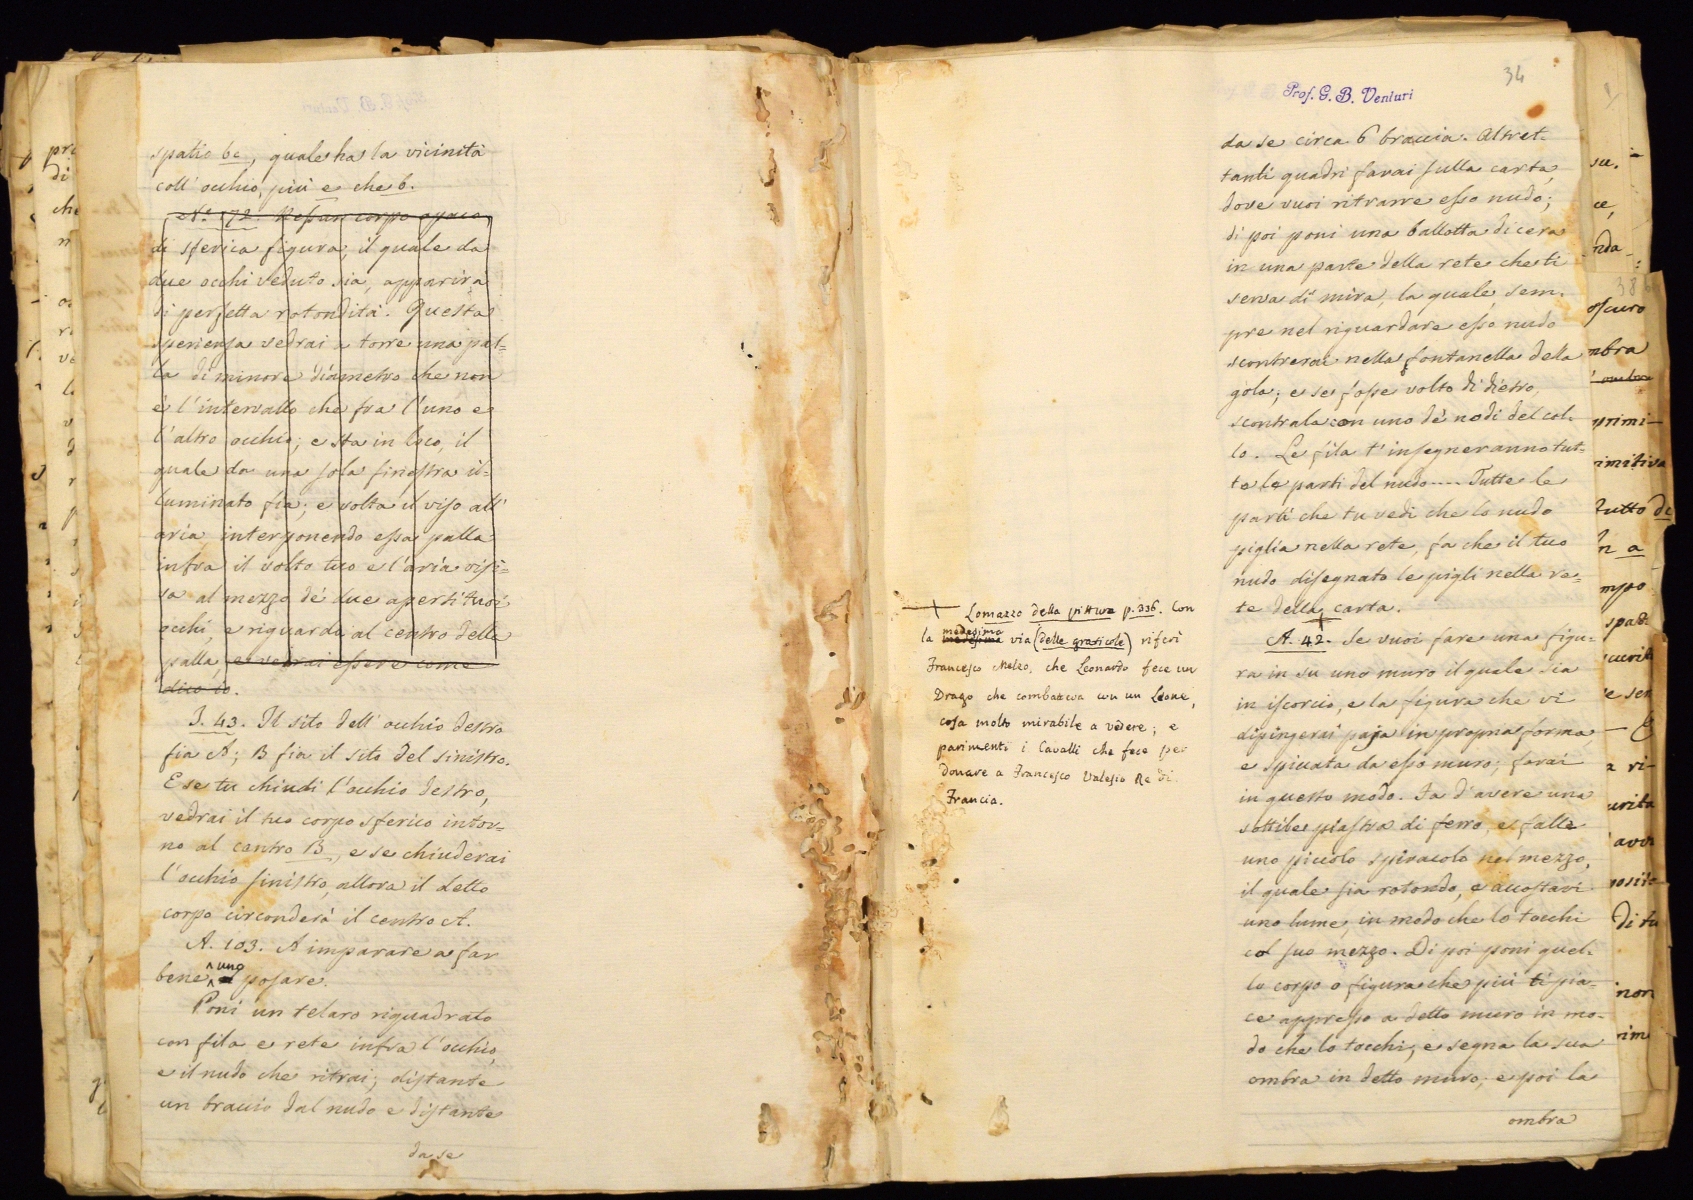 spatio bc, quale ha la vicinità
coll' occhio, più e che b.
N.° 72. Nessun corpo opaco,
di sferica figura, il quale da
due occhi veduto sia, apparirà
di perfetta rotondità. Questa
sperienza vedrai a torre una pal=
la di minore diametro che non
è l'intervallo che fra l'uno e
l'altro occhio; e sta in loco, il
quale da una sola finestra il=
luminato fia; e volta il viso all'
aria interponendo essa palla
infra il volto tuo e l'aria vissi=
va al mezzo de' due aperti tuoi
occhi, e riguarda al centro della
palla, e vedrai essere come
dico io.
J. 43. Il sito dell' occhio destro
fia A; B fia il sito del sinistro.
E se tu chiudi l'occhio destro,
vedrai il tuo corpo sferico intor=
no al centro B, e se chiuderai
l'occhio sinistro, allora il detto
corpo circonderà il centro A.
A. 103. A imparare a far
bene uno posare.
Poni un telaro riquadrato
con fila e rete infra l'occhio,
e il nudo che ritrai; distante
un braccio dal nudo e distante
da se
34
Prof. G. B. Venturi
da se circa 6 braccia. Altret=
tanti quadri farai sulla carta,
dove vuoi ritrarre esso nudo;
di poi poni una ballotta di cera
in una parte della rete che ti
serva di mira, la quale sem=
pre nel riguardare esso nudo
scontrerai nella fontanella della
gola; e se fosse volto di dietro,
scontrala con uno de' nodi del col=
lo. Le fila t'insegneranno tut=
te le parti del nudo.... Tutte le
parti che tu vedi che lo nudo
piglia nella rete, fa che il tuo
nudo disegnato le pigli nella re=
te della carta.
A. 42. Se vuoi fare una figu=
ra in su uno muro il quale sia
in iscorcio, e la figura che vi
dipingerai paja in propria forma,
e spiccata da esso muro; farai
in questo modo. Fa d'avere una
sottile piastra di ferro, e falle
uno piccolo spiracolo nel mezzo,
il quale sia rotondo, e accostavi
uno lume, in modo che lo tocchi
col suo mezzo. Di poi poni quel=
lo corpo o figura che più ti pia=
ce appresso a detto muro in mo=
do che lo tocchi, e segna la sua
ombra in detto muro, e poi la
ombra
Lomazzo della pittura p. 336. Con
la medesima via (delle graticole) riferì
Francesco Melzo, che Leonardo fece un
Drago che combatteva con un Leone,
cosa molto mirabile a vedere; e
parimenti i Cavalli che fece per
donare a Francesco Valesio Re di
Francia.